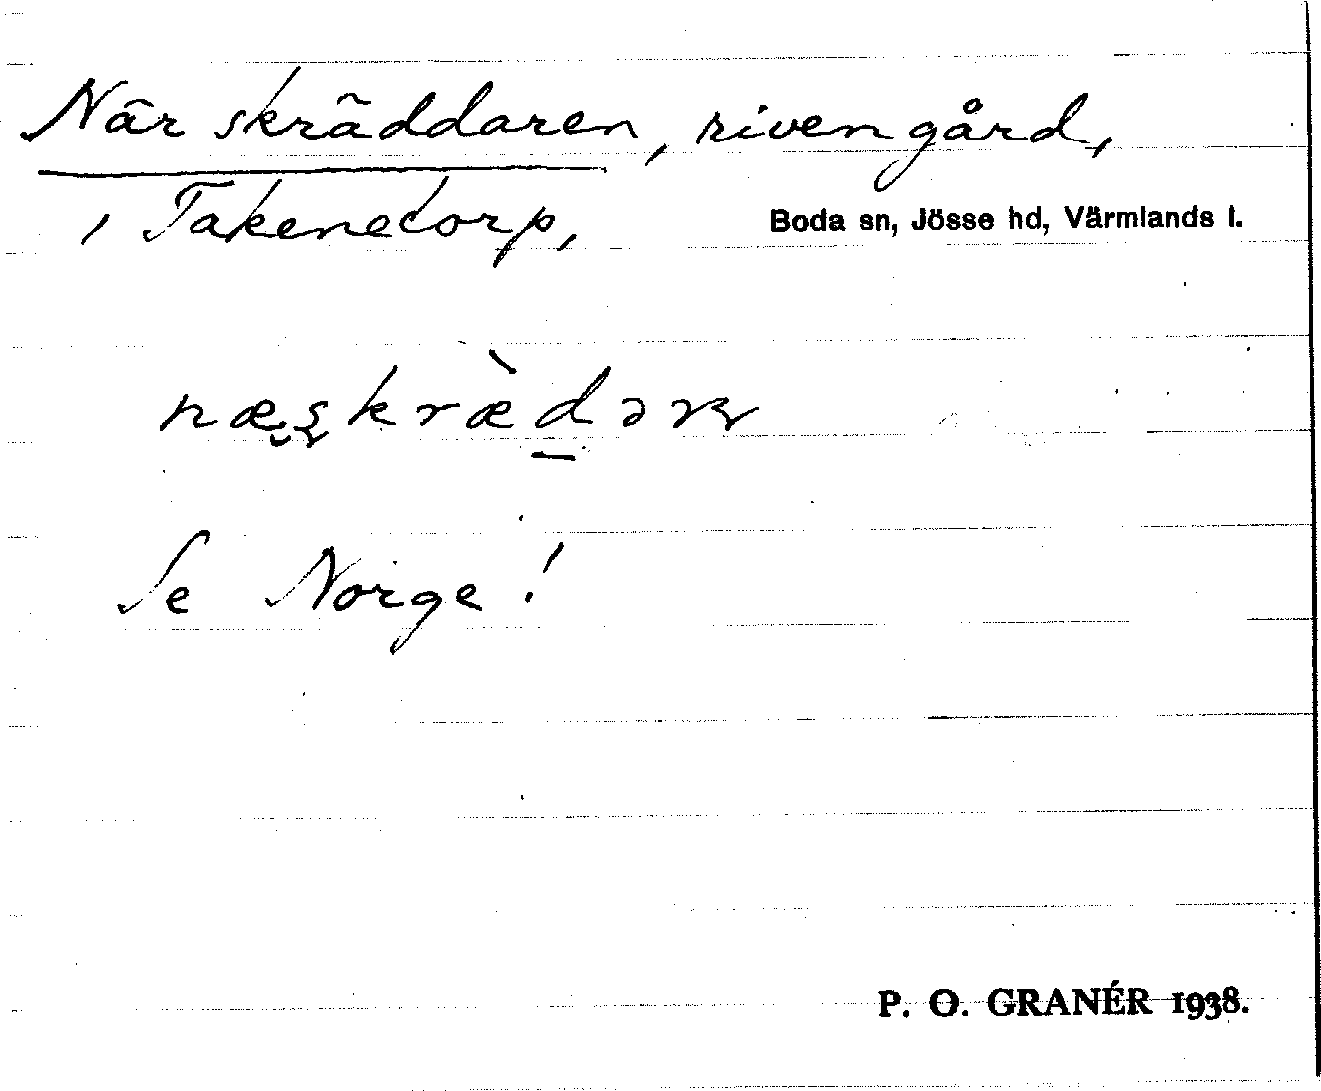 När skräddaren, riven gård,
i Takenetorp,
Boda sn, Jösse hd, Värmlands l.
Se Norge!
P. O. GRANÉR 1938.